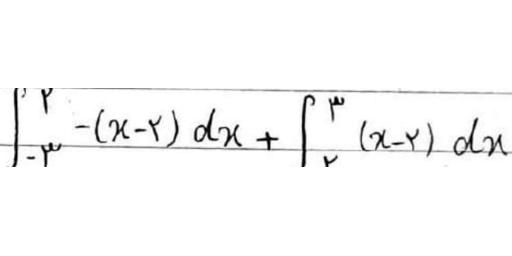 ∫_{-۳}^{۲} -(x-۲) dx + ∫_{۲}^{۳} (x-۲) dx